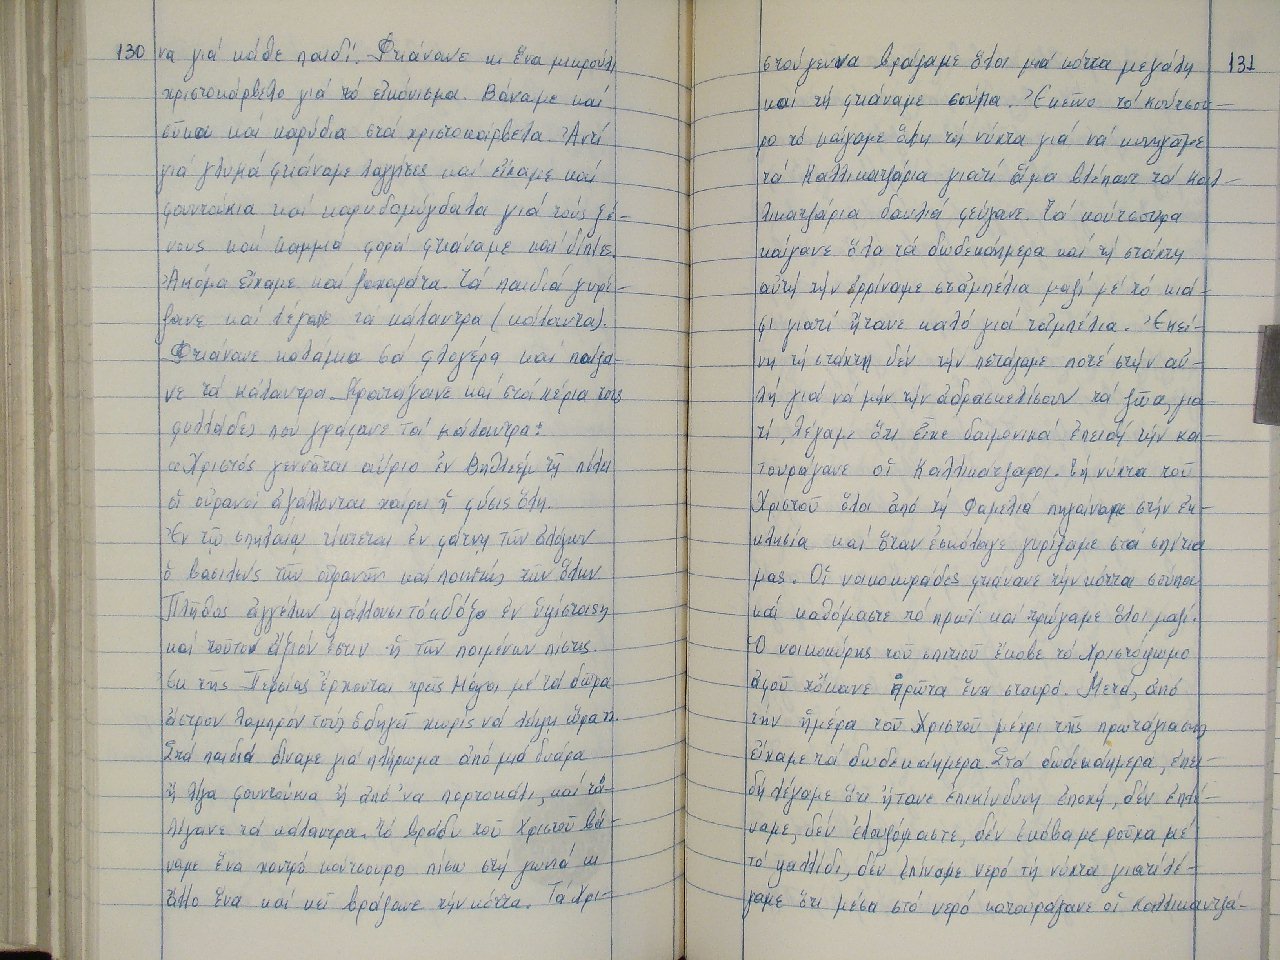 130
να γιά κάθε παιδί. Φτιάνανε κι ἕνα μικρούλι
χριστοκάρβελο γιά τό εἰκόνισμα. Βάναμε καί
σῦκα καί καρύδια στά χριστοκάρβελα. Ἀντί
γιά γλυκά φτιάναμε λαγγίτες καί εἴχαμε καί
φουντούκια καί καρυδομύγδαλα γιά τούς ξέ-
νους καί καμμιά φορά φτιάναμε καί δίπλες.
Ἀκόμα εἴχαμε καί ζαχαράτα. Τά παιδιά γυρί-
ζανε καί λέγανε τα κάλαντρα (κάλαντα).
Φτιάνανε καλάμια σά φλογέρα καί παίζα-
νε τά κάλαντρα. Κρατάγανε καί στά χέρια τους
φυλλάδες που γράφανε τά κάλαντρα:
«Χριστός γεννᾶται αὔριο ἐν Βηθλεέμ τῇ πόλει
οἱ οὐρανοί ἀγάλλονται χαίρει ἡ φύσις ὅλη.
Ἐν τῷ σπηλαίῳ τίκτεται ἐν φάτνῃ τῶν ἀλόγων
ὁ βασιλεύς τῶν οὐρανῶν καί ποιητής τῶν ὅλων
Πλῆθος ἀγγέλων ψάλλουσι τό «δόξα ἐν ὑψίστοις»
καί τοῦτον ἄξιόν ἐστιν ἡ τῶν ποιμένων πίστις.
Ἐκ τῆς Περσίας ἔρχονται τρεῖς Μάγοι μέ τά δῶρα
ἄστρον λαμπρόν τούς ὁδηγεῖ χωρίς νά λείψῃ ὥρα».
Στά παιδιά δίναμε γιά πλήρωμα ἀπό μιά δυάρα
ἤ λίγα φουντούκια ἤ ἀπό 'να πορτοκάλι, καί τά
λέγανε τά κάλαντρα. Τό βράδυ τοῦ Χριστοῦ βά-
ναμε ἕνα χοντρό κούτσουρο πίσω στή γωνιά κι
ἄλλο ἕνα καί κεῖ βράζανε τήν κόττα. Τά Χρι-
131
στούγεννα βράζαμε ὅλοι μιά κόττα μεγάλη
καί τή φτιάναμε σούπα. Ἐκεῖνο τό κούτσου-
ρο τό καίγαμε ὅλη τή νύχτα γιά νά κυνηγᾶμε
τά Καλλικατζάρια γιατί ἅμα βλέπανε τά Καλ-
λικατζάρια δαυλιά φεύγανε. Τά κούτσουρα
καίγανε ὅλα τά δωδεκαήμερα καί τή στάχτη
αὐτή τήν ἐρρίναμε στ' ἀμπέλια μαζί μέ τό κιά-
φι γιατί ἤτανε καλό γιά τ' ἀμπέλια. Ἐκεί-
νη τή στάχτη δέν τήν πετάγαμε ποτέ στήν αὐ-
λή γιά νά μήν τήν ἀδρασκελίσουν τά ζῶα, για-
τί, λέγαμε ὅτι εἶχε δαιμονικά ἐπειδή τήν κα-
τουράγανε οἱ Καλλικάτζαροι. Τή νύχτα τοῦ
Χριστοῦ ὅλοι ἀπό τή φαμελιά πηγαίναμε στήν ἐκ-
κλησία καί ὅταν ἐσκόλαγε γυρίζαμε στά σπίτια
μας. Οἱ νοικοκυράδες φτιάνανε τήν κόττα σούπα
καί καθόμαστε τό πρωΐ καί τρώγαμε ὅλοι μαζί.
Ὁ νοικοκύρης τοῦ σπιτιοῦ ἔκοβε τό Χριστόψωμο
ἀφοῦ τὄκανε πρῶτα ἕνα σταυρό. Μετά, ἀπό
τήν ἡμέρα τοῦ Χριστοῦ μέχρι τῆς πρωτάγιασης
εἴχαμε τά δωδεκαήμερα. Στά δωδεκαήμερα, ἐπει-
δή λέγαμε ὅτι ἤτανε ἐπικίνδυνη ἐποχή, δέν ἐπλέ-
ναμε, δέν ἐλουζόμαστε, δέν ἐκόβαμε ροῦχα μέ
τό ψαλλίδι, δέν ἐπίναμε νερό τή νύχτα γιατί λέ-
γαμε ὅτι μέσα στό νερό κατουράγανε οἱ Καλλικαντζά-